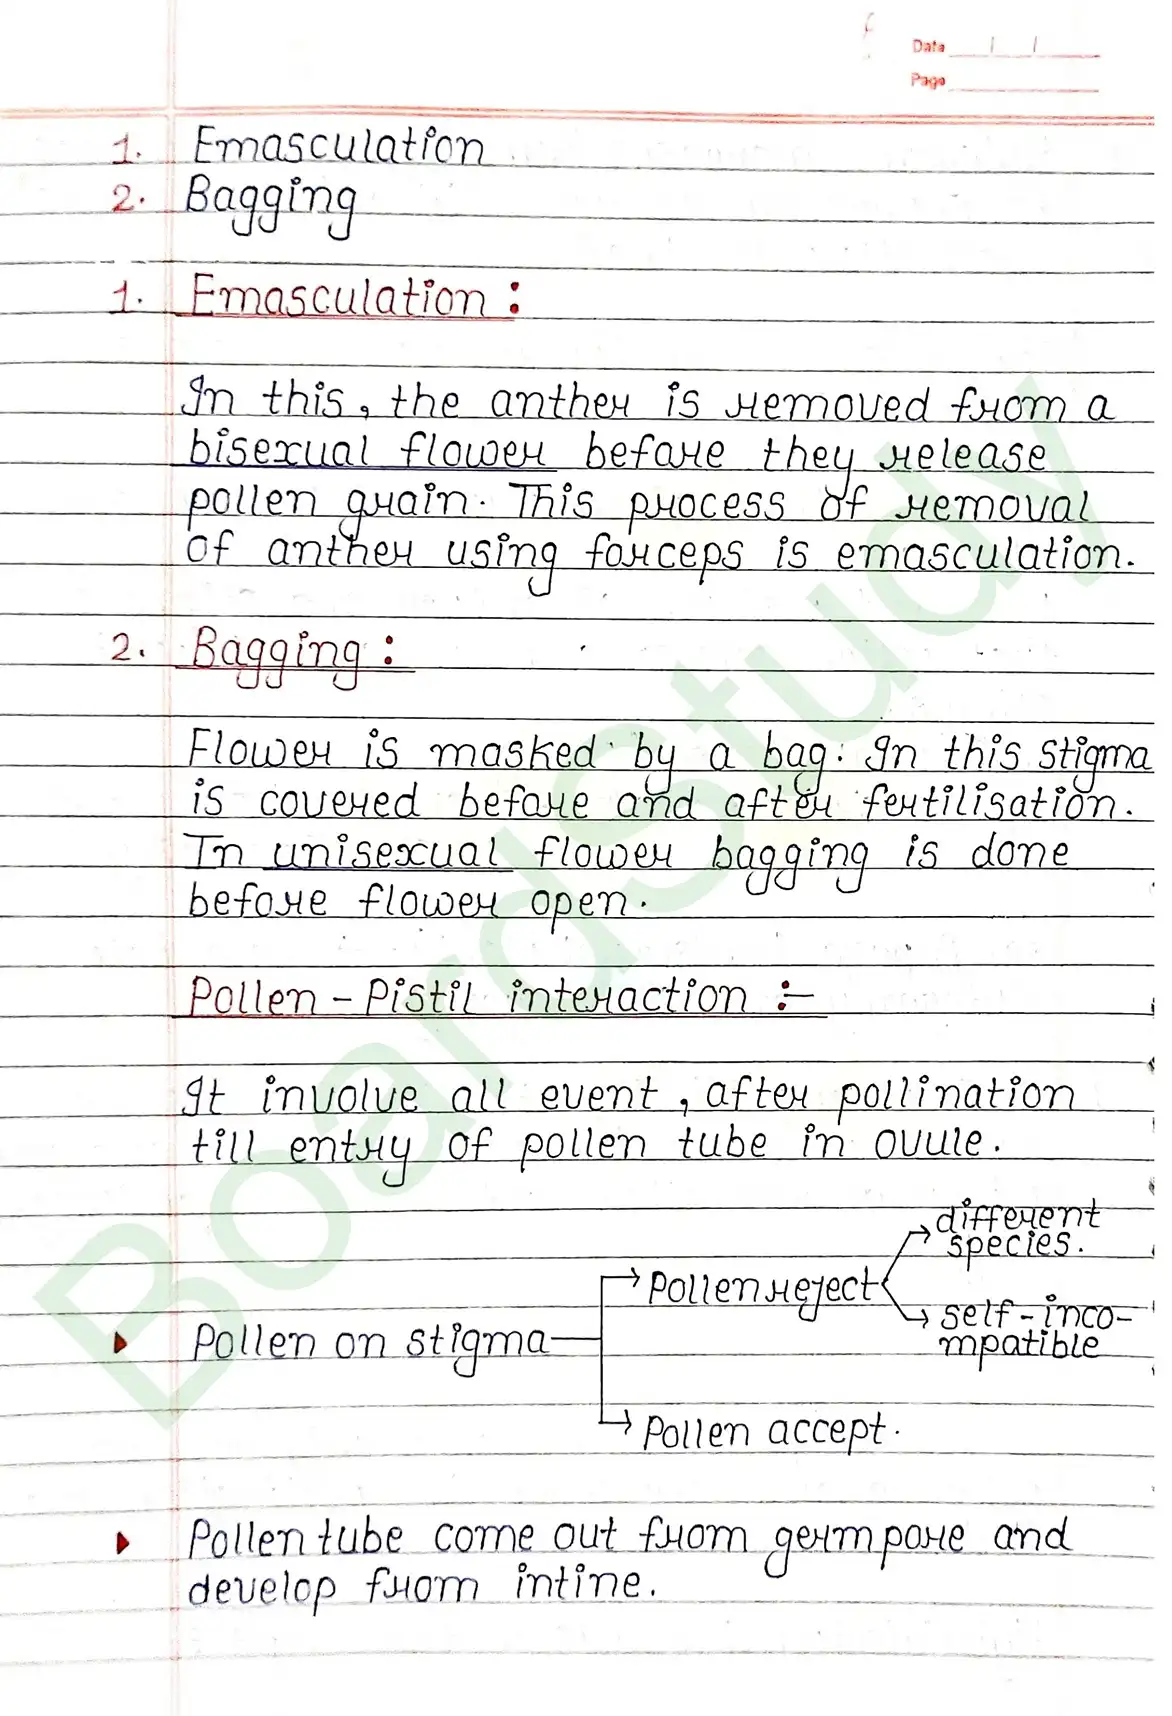 Date
Page
1. Emasculation
2. Bagging
1. Emasculation :
In this, the anther is removed from a
bisexual flower before they release
pollen grain. This process of removal
of anther using forceps is emasculation.
2. Bagging :
Flower is masked by a bag. In this stigma
is covered before and after fertilisation.
In unisexual flower bagging is done
before flower open.
Pollen - Pistil interaction :-
It involve all event, after pollination
till entry of pollen tube in ovule.
different
species.
Pollen reject
self-inco-
mpatible
Pollen on stigma
Pollen accept.
Pollen tube come out from germpore and
develop from intine.
BoardStudy